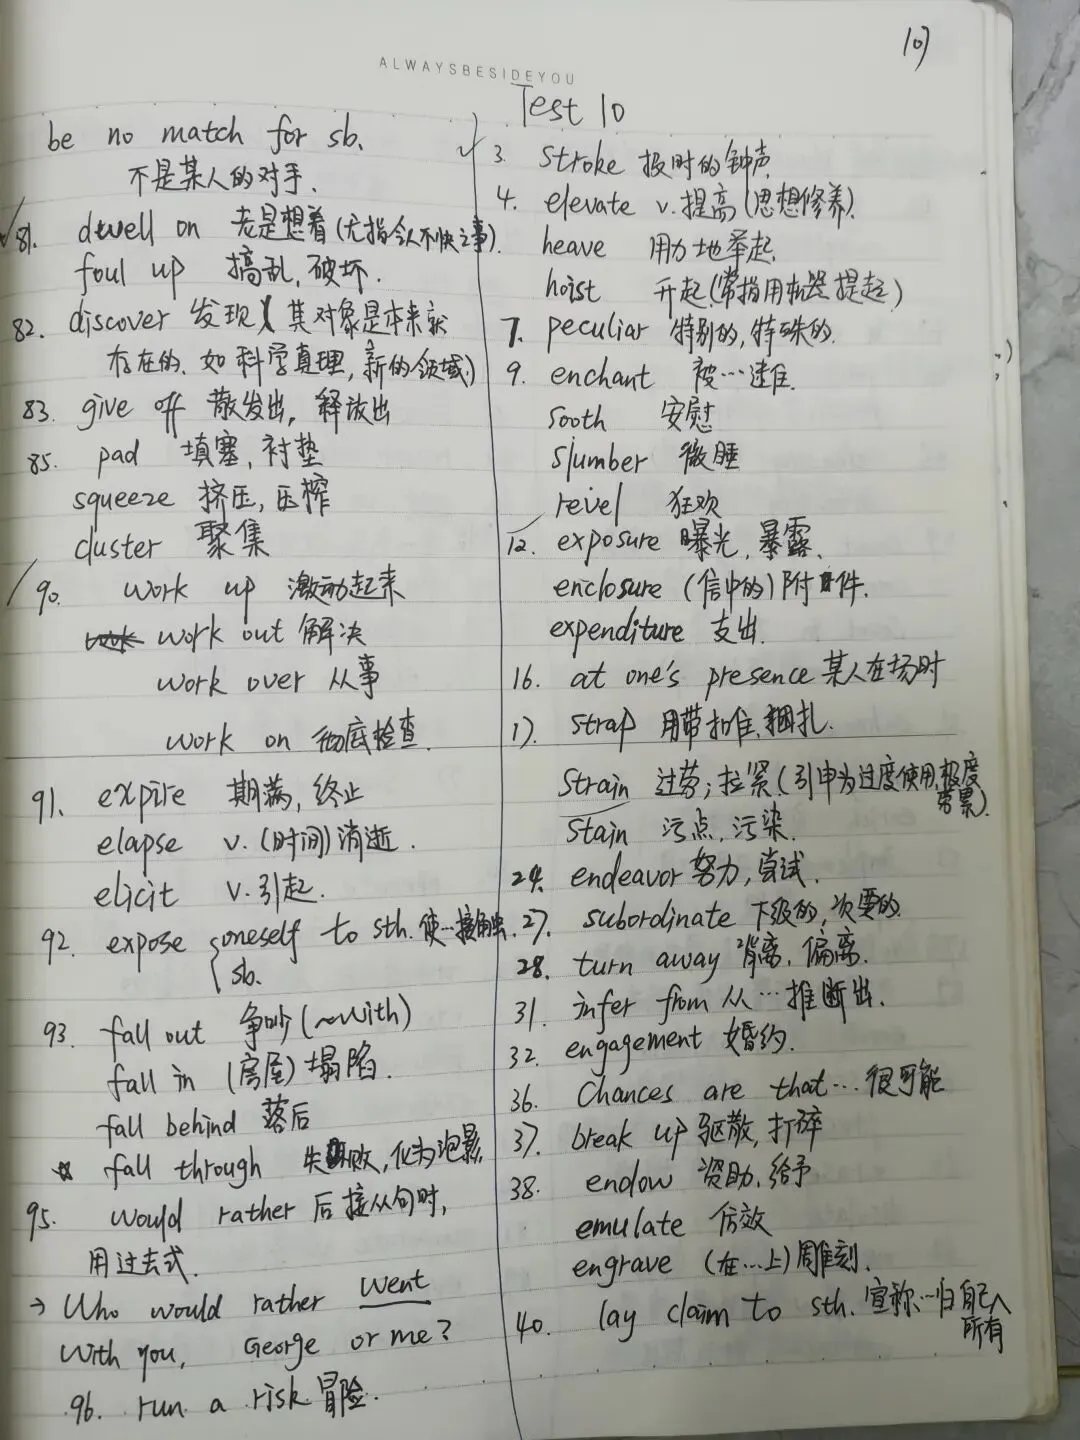 107
ALWAYSBESIDEYOU
be no match for sb.
不是某人的对手.
81. dwell on 老是想着(尤指令人不快之事).
foul up 搞乱,破坏.
82. discover 发现(其对象是本来就
存在的.如科学真理,新的领域)
83. give off 散发出,释放出
85. pad 填塞,衬垫
squeeze 挤压,压榨
cluster 聚集
90. work up 激动起来
work out 解决
work over 从事
work on 彻底检查.
91. expire 期满,终止
elapse v.(时间)消逝.
elicit v.引起.
92. expose {oneself to sth. 使…接触.
sb.
93. fall out 争吵(~with)
fall in (房屋)塌陷.
fall behind 落后
☆ fall through 失败,化为泡影
95. would rather 后接从句时,
用过去式.
→ Who would rather went
with you, George or me?
96. run a risk 冒险.
Test 10
3. stroke 报时的钟声
4. elevate v.提高(思想修养).
heave 用力地举起.
hoist 升起(常指用机器提起)
7. peculiar 特别的,特殊的.
9. enchant 被…迷住.
sooth 安慰
slumber 微睡
revel 狂欢
12. exposure 曝光,暴露.
enclosure (信中的)附件.
expenditure 支出.
16. at one's presence 某人在场时
17. strap 用带扣住,捆扎.
strain 过劳;拉紧(引申为过度使用,极度
劳累).
stain 污点,污染.
24. endeavor 努力,尝试.
27. subordinate 下级的,次要的.
28. turn away 背离,偏离.
31. infer from 从…推断出.
32. engagement 婚约.
36. Chances are that… 很可能
37. break up 驱散,打碎
38. endow 资助,给予
emulate 仿效
engrave (在…上)雕刻.
40. lay claim to sth. 宣称…归自己
所有